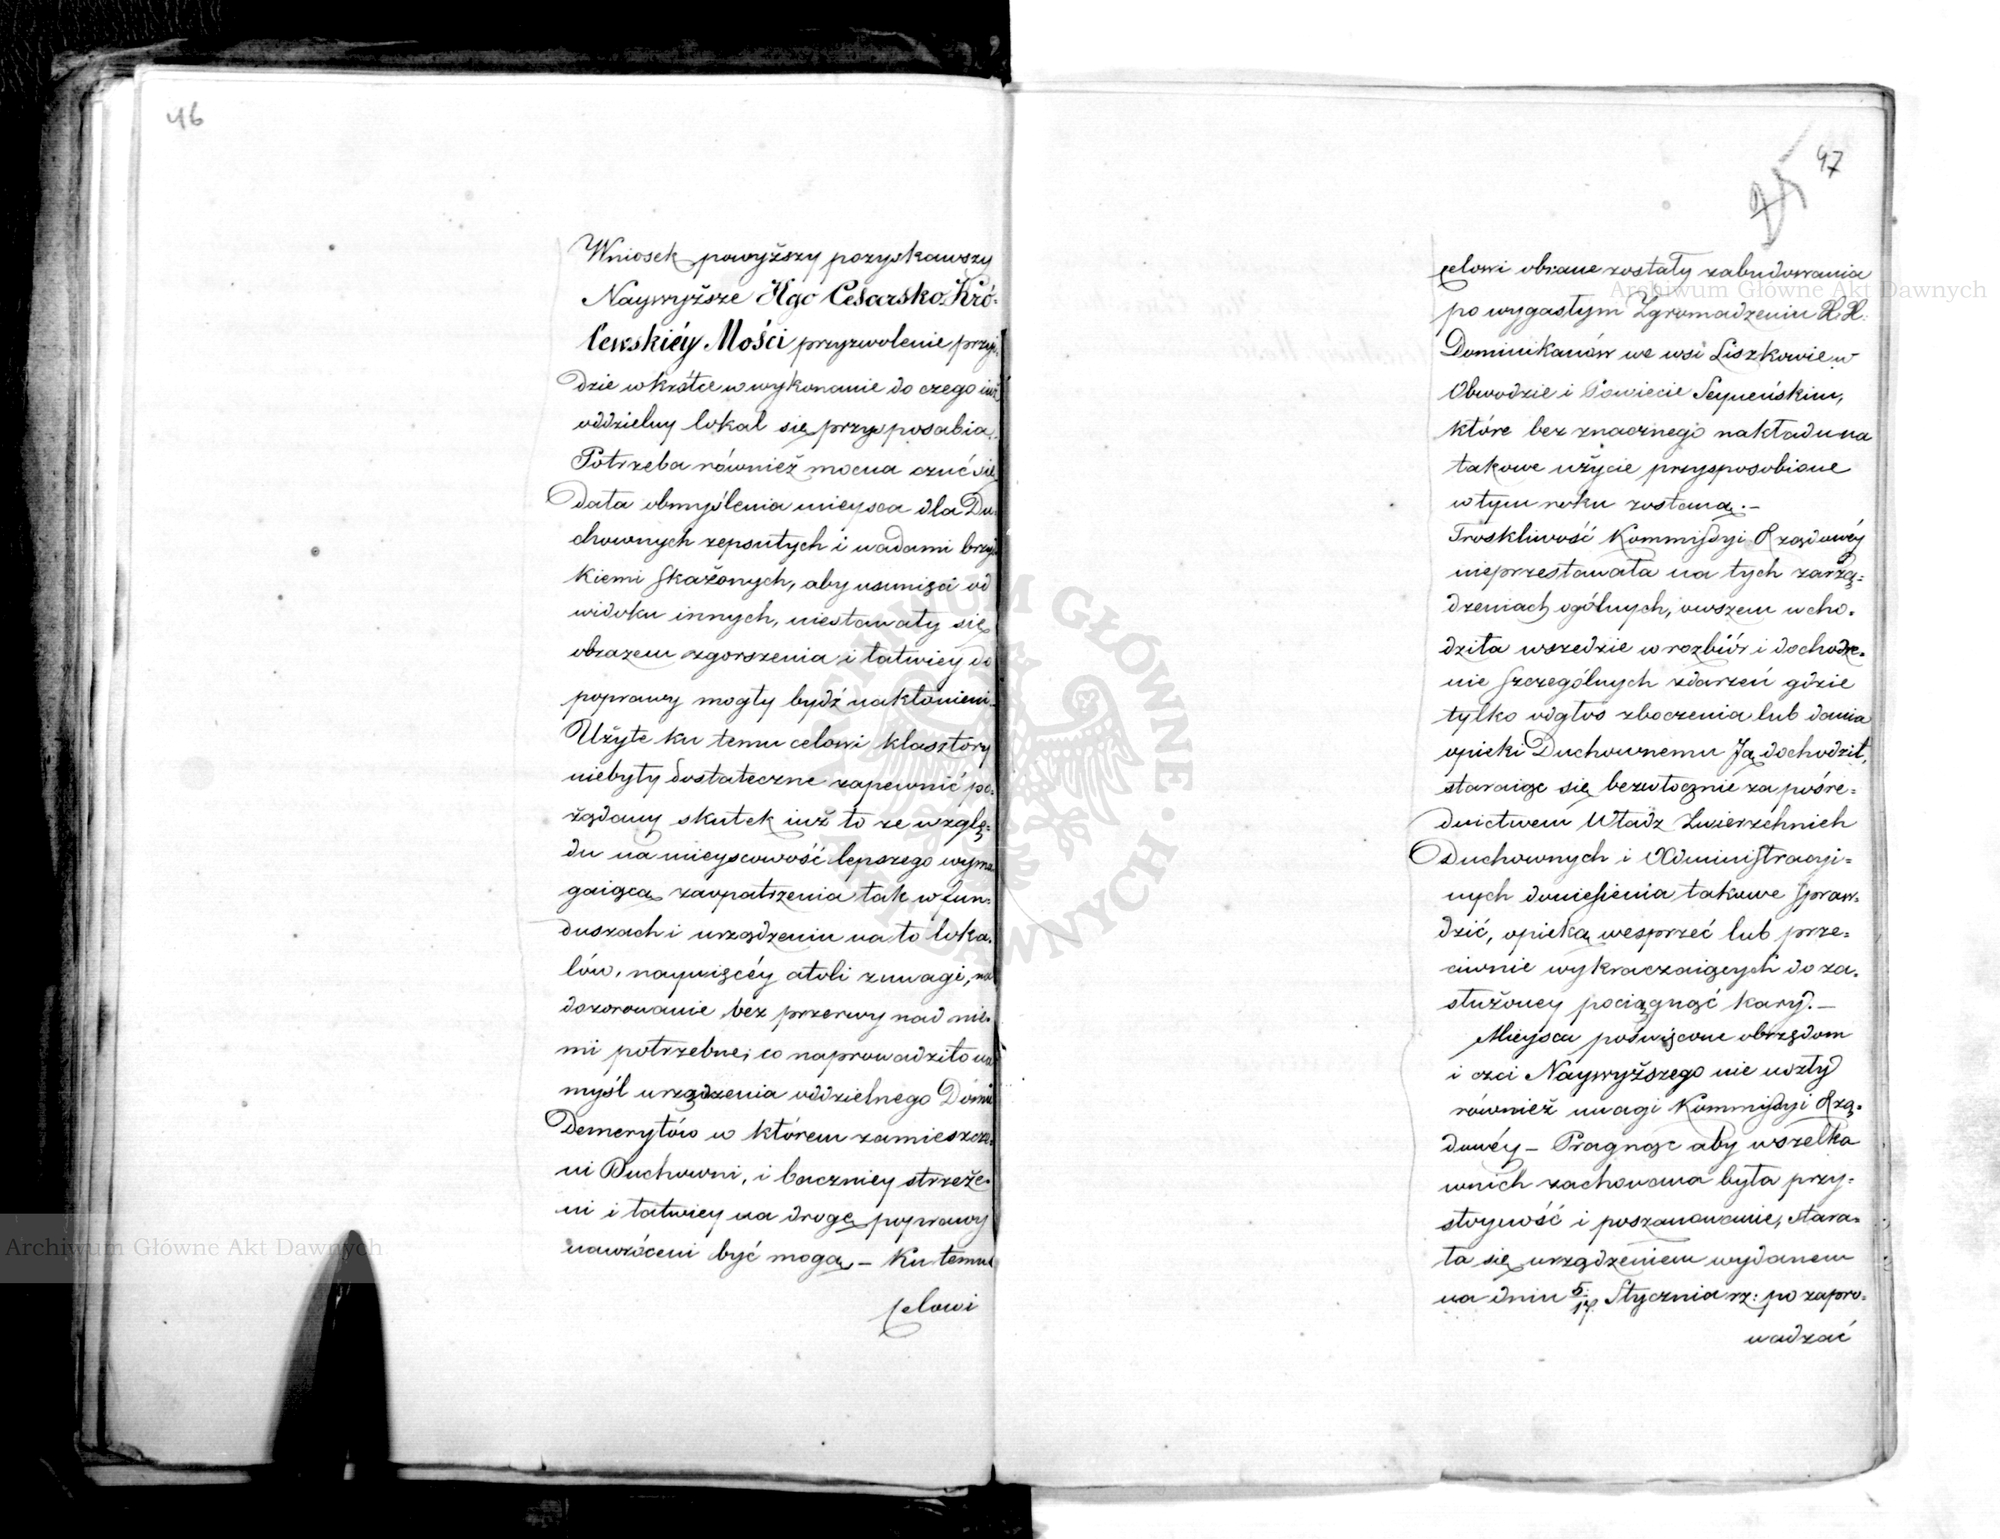 46
Wniosek powyższy pozyskawszy
Naywyższe Jego Cesarsko Kró-
lewskiéy Mości przyzwolenie przyi-
dzie wkrótce w wykonanie do czego iuż
oddzielny lokal się przysposabia.
Potrzeba również mocna czuć się
dała obmyślenia mieysca dla Du-
chownych zepsutych i wadami brzyd
kiemi skażonych, aby usunięci od
widoku innych, niestawały się
obrazem zgorszenia i łatwiéy do
poprawy mogły bydź nakłonieni.
Użyte ku temu celowi klasztory
niebyły dostateczne zapewnić po-
żądany skutek iuż to ze wzglę-
du na mieyscowość lepszego wyma
gaiącą zaopatrzenia tak w fun-
duszach i urządzeniu na to loka-
lów, naywięcéy atoli z uwagi, na
dozorowanie bez przerwy nad nie-
mi potrzebne; co naprowadziło na
myśl urządzenia oddzielnego Domu
Demerytów w którem zamieszcze-
ni Duchowni, i baczniey strzeże-
ni i łatwiey na drogę poprawy
nawróceni być mogą – Ku temu
Celowi
47
celowi obrane zostały zabudowania
po wygasłym Zgromadzeniu X.X.
Dominikanów we wsi Liszkowie w
Obwodzie i Powiecie Seyneńskim,
które bez znacznego nakładu na
takowe użycie przysposobione
w tym roku zostaną. –
Troskliwość Kommissyi Rządowéy
nieprzestawała na tych zarzą-
dzeniach ogólnych, owszem wcho-
dziła wszędzie w rozbiór i dochodze-
nie szczególnych zdarzeń gdzie
tylko odgłos zboczenia lub dania
opieki Duchownemu Ją dochodził,
staraiąc się bezwłocznie za pośre-
dnictwem Władz Zwierzchnich
Duchownych i Administracyi-
nych doniesienia takowe spraw-
dzić, opieką wesprzeć lub prze-
ciwnie wykraczaiących do za-
służoney pociągnąć kary. –
Mieysca poświęcone obrzędom
i czci Naywyższego nie uszły
również uwagi Kommissyi Rzą-
dowéy – Pragnąc aby wszelka
wnich zachowana była przy-
stoyność i poszanowanie, stara-
ła się urządzeniem wydanem
na dniu 5/17 Stycznia rz: po zapro-
wadzać
Archiwum Główne Akt Dawnych
Archiwum Główne Akt Dawnych
ARCHIWUM GŁÓWNE AKT DAWNYCH